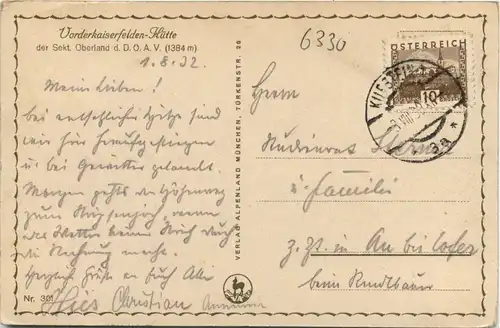 Vorderkaiserfelden-Hütte
der Sekt. Oberland d. D. Ö. A. V. (1384 m)
1. 8. 32.
Meine Lieben!
bei entsetzlicher Hitze sind
wir hier heraufgestiegen
u. bei Gewitter gelandet.
Morgen geht's den Höhenweg
zum Stripsenjoch, wenn
das Wetter keinen Strich durch
die Rechnung macht.
Herzliche Grüße an Euch Alle
Christian
Nr. 301
VERLAG ALPENLAND MÜNCHEN, TÜRKENSTR. 26
6330
ÖSTERREICH
10
KUFSTEIN
3a
Herrn
Studienrat
u. Familie
z. Zt. in Au bei Lofer
beim